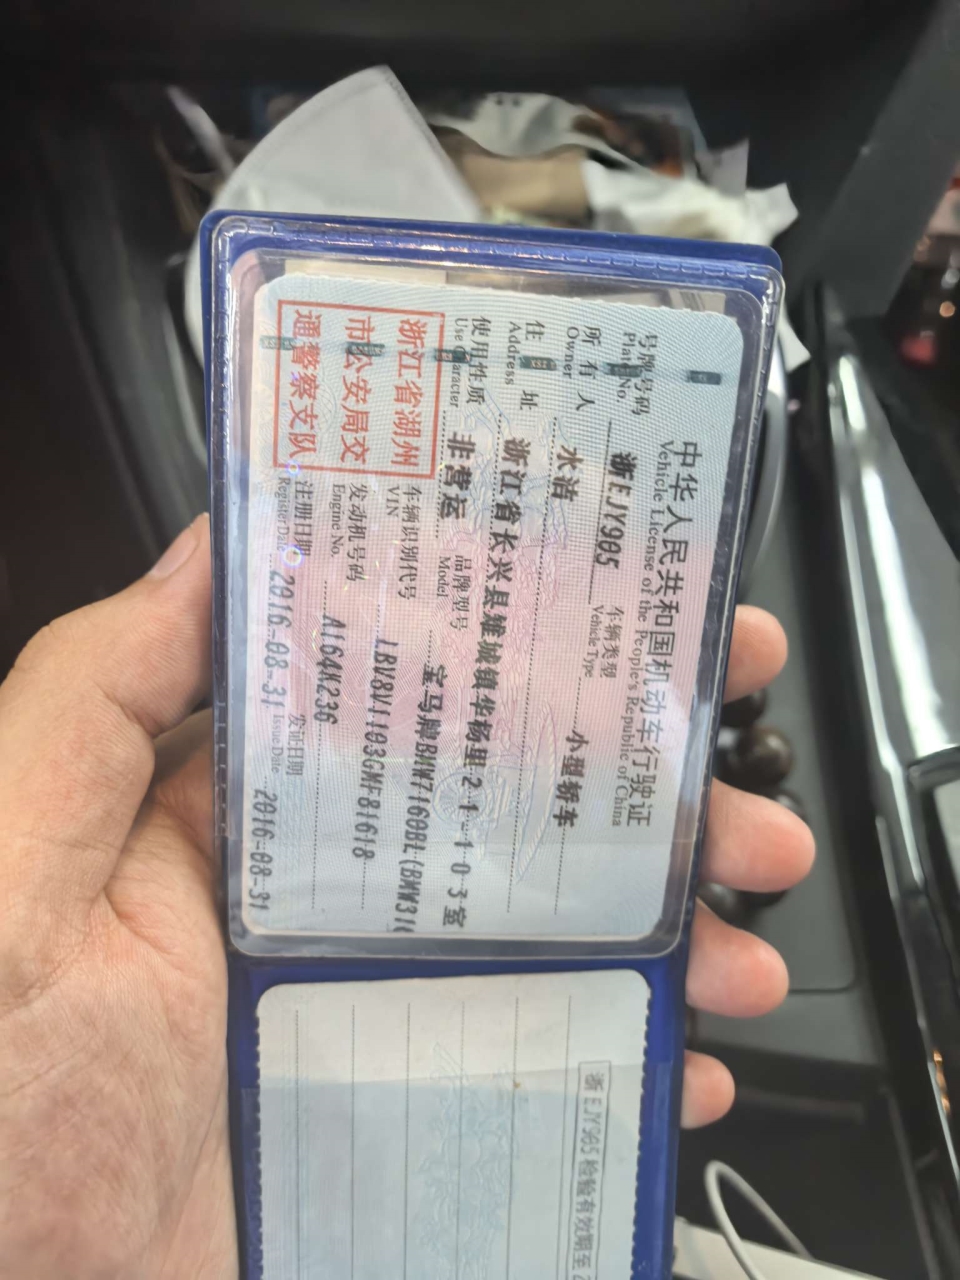 中华人民共和国机动车行驶证
Vehicle License of the People's Republic of China
号牌号码 浙EJY905 车辆类型 小型轿车
Plate No. Vehicle Type
所有人 水洁
Owner
住址 浙江省长兴县雉城镇华杨里2-1-103室
Address
使用性质 非营运 品牌型号 宝马牌BMW7160BL(BMW31
Use Character Model
浙江省湖州
市公安局交
通警察支队
车辆识别代号 LBV8V1103GMF81618
VIN
发动机号码 A164K236
Engine No.
注册日期 2016-08-31 发证日期 2016-08-31
Register Date Issue Date
浙EJY905 检验有效期至2